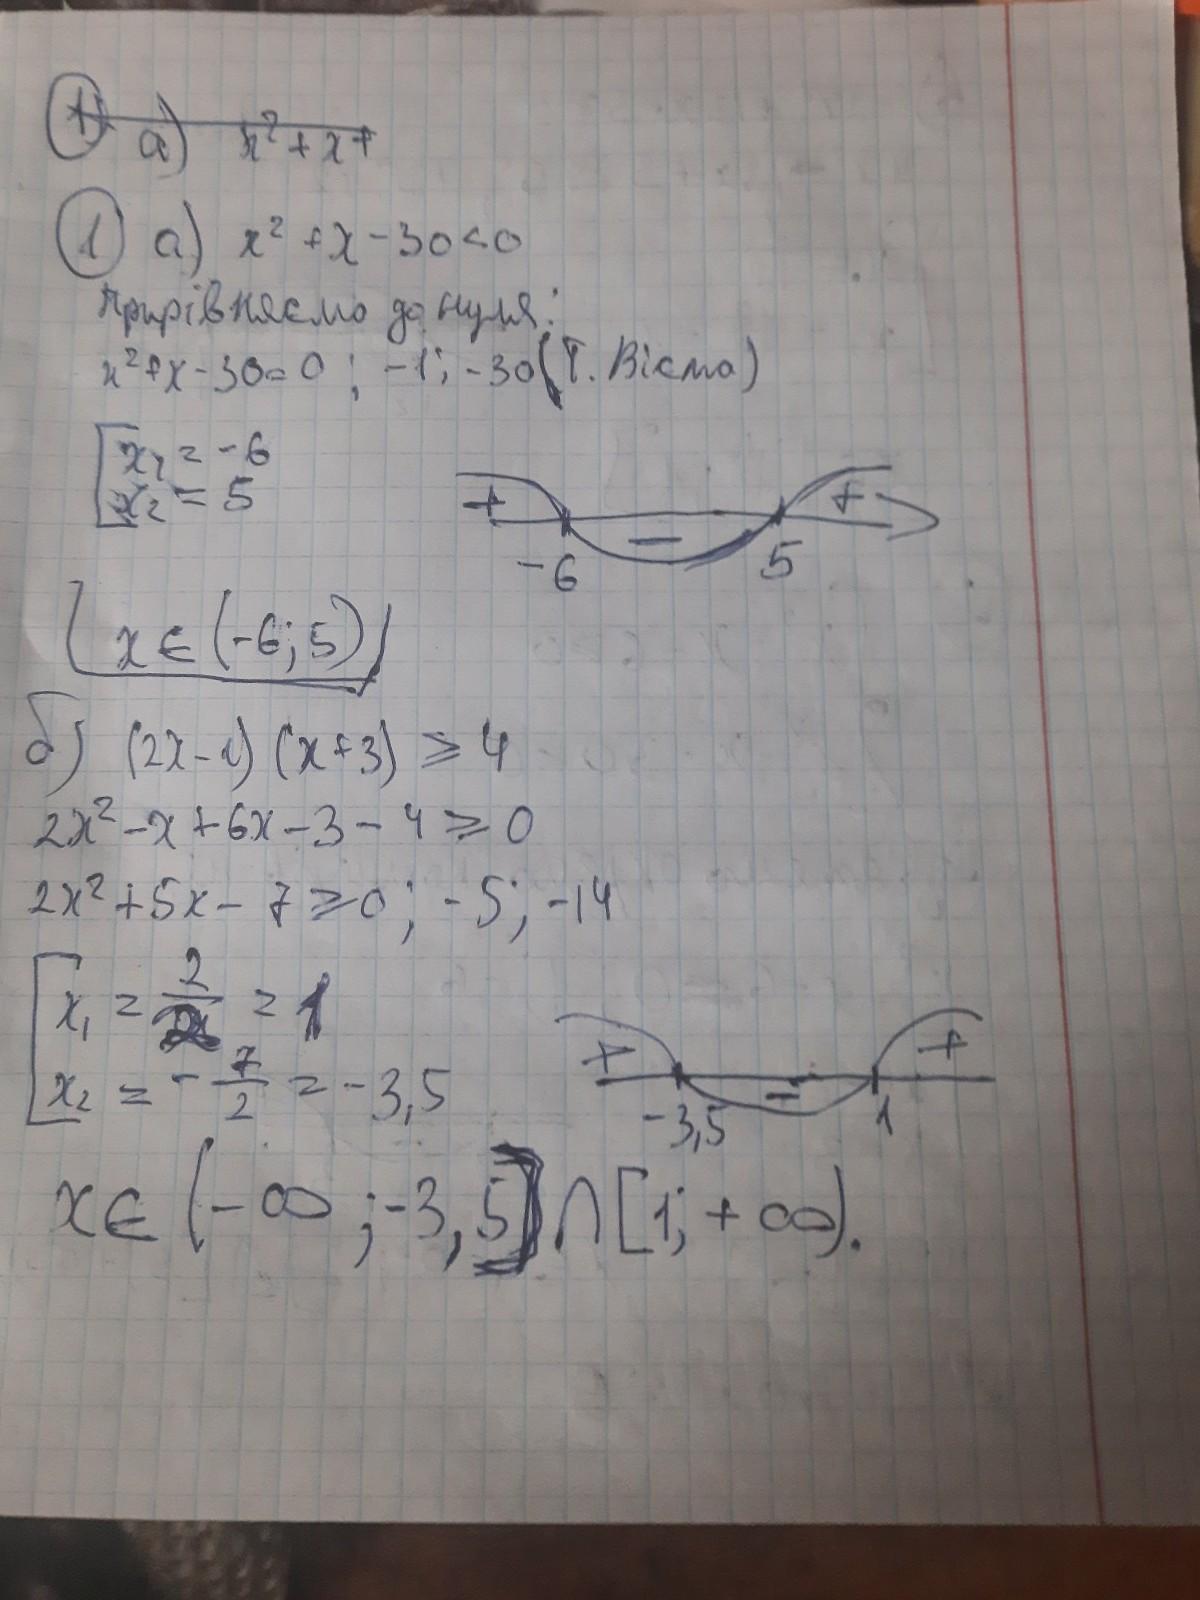 1 а) x² + x +
1 а) x² + x - 30 < 0
Прирівняємо до нуля:
x² + x - 30 = 0 ; -1; -30 (Т. Вієта)
x₁ = -6
x₂ = 5
+ − +
-6 5
x ∈ (-6; 5)
б) (2x - 1) (x + 3) ≥ 4
2x² - x + 6x - 3 - 4 ≥ 0
2x² + 5x - 7 ≥ 0 ; -5; -14
x₁ = 2/2 = 1
x₂ = -7/2 = -3,5
+ − +
-3,5 1
x ∈ (-∞ ; -3,5] ∩ [1; +∞).